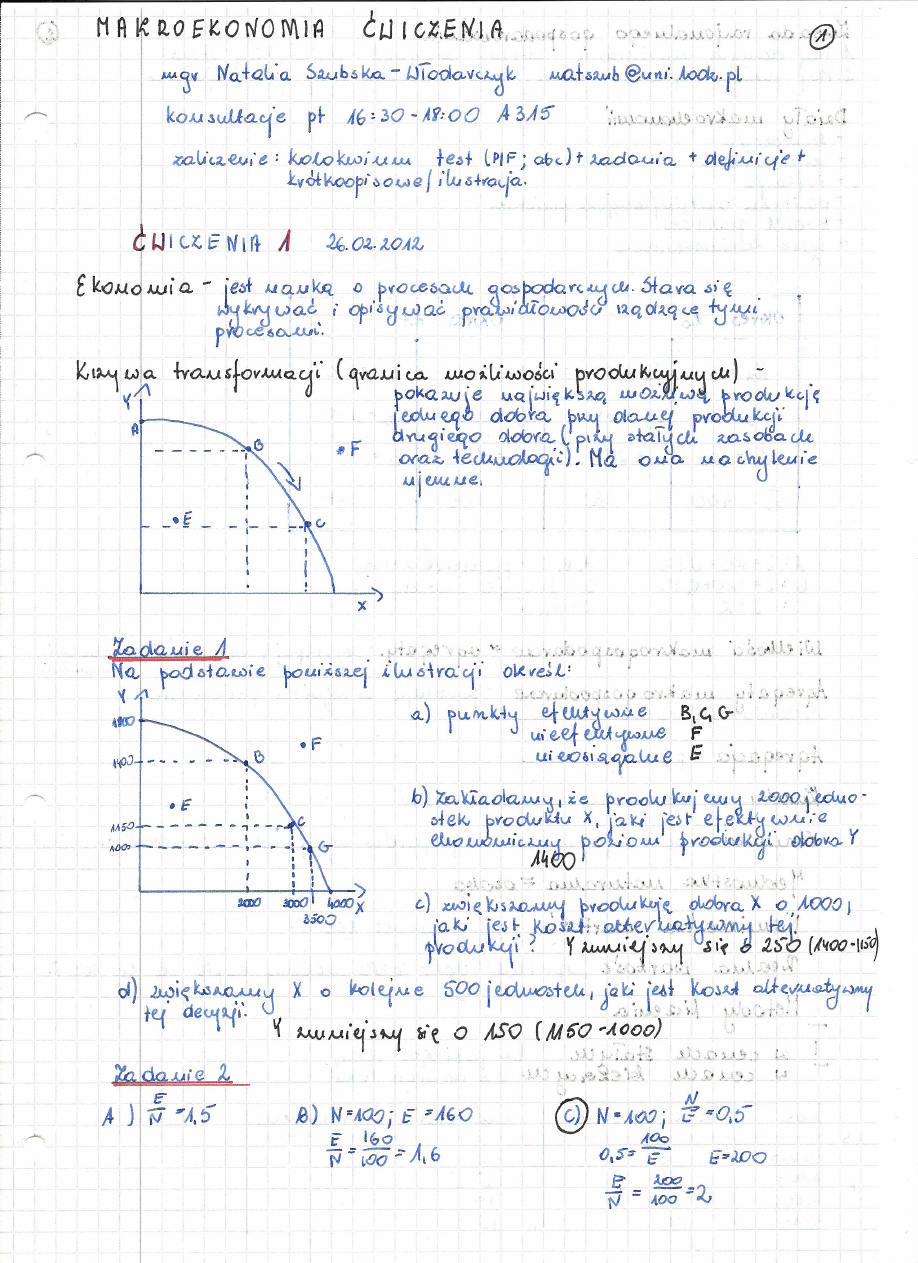 MAKROEKONOMIA ĆWICZENIA
1
mgr Natalia Szubska-Włodarczyk natszub@uni.lodz.pl
konsultacje pt 16:30-18:00 A315
zaliczenie: kolokwium test (P/F; abc) + zadania + definicje +
krótkoopisowe/ilustracja.
ĆWICZENIA 1 26.02.2012
Ekonomia - jest nauką o procesach gospodarczych. Stara się
wykrywać i opisywać prawidłowości rządzące tymi
procesami.
Krzywa transformacji (granica możliwości produkcyjnych) -
pokazuje największą możliwą produkcję
jednego dobra przy danej produkcji
drugiego dobra (przy stałych zasobach
oraz technologii). Ma ona nachylenie
ujemne.
Y
A
B
F
E
C
X
Zadanie 1
Na podstawie poniższej ilustracji określ:
Y
1800
1400
1150
1000
B
F
E
C
G
2000 3000 4000 X
3500
a) punkty efektywne B, C, G
nieefektywne F
nieosiągalne E
b) Zakładamy, że produkujemy 2000 jedno-
stek produktu X, jaki jest efektywnie
ekonomiczny poziom produkcji dobra Y
1400
c) zwiększamy produkcję dobra X o 1000,
jaki jest koszt alternatywny tej
produkcji? Y zmniejszy się o 250 (1400-1150)
d) zwiększamy X o kolejne 500 jednostek, jaki jest koszt alternatywny
tej decyzji.
Y zmniejszy się o 150 (1150-1000)
Zadanie 2
A) E/N = 1,5
B) N=100; E=160
E/N = 160/100 = 1,6
C) N=100; N/E = 0,5
0,5 = 100/E E=200
E/N = 200/100 = 2